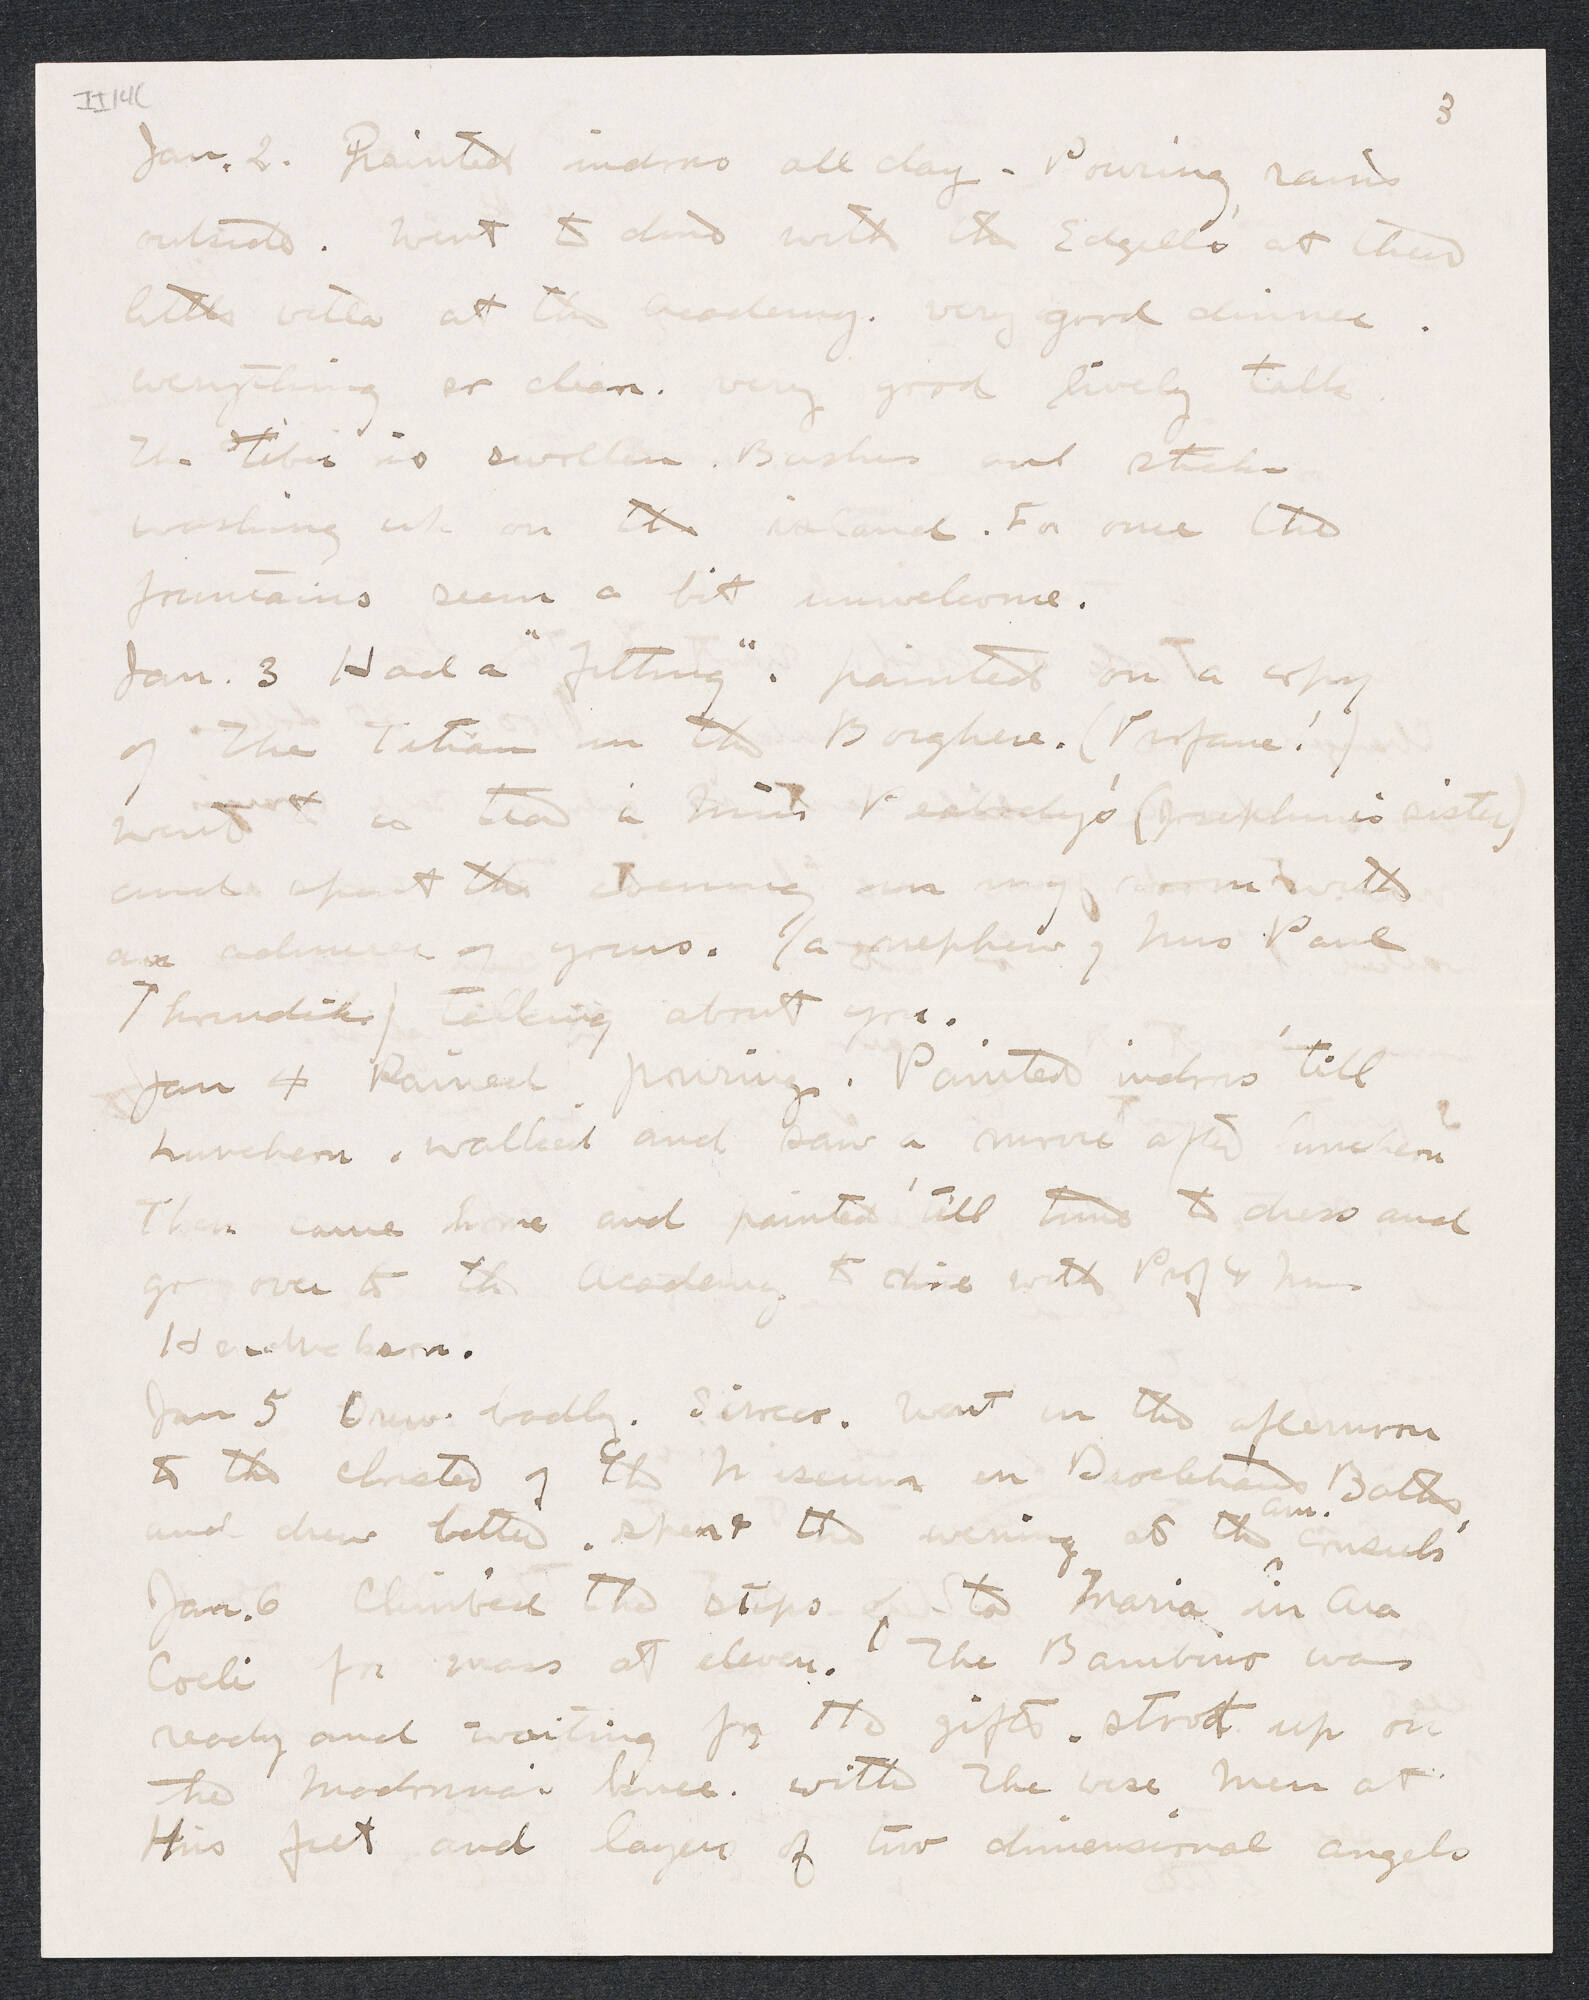 II 14C
3
Jan. 2. Painted indoors all day - Pouring rains
outside. Went to dine with the Edgells' at their
little villa at the Academy. very good dinner.
everything so clean. very good lively talk.
The Tiber is swollen. Bushes and sticks
washing up on the island. For once the
fountains seem a bit unwelcome.
Jan. 3 Had a "fitting". painted on a copy
of The Titian in the Borghese. (Profane!)
went to tea à Miss Peabody's (Josephine's sister)
and spent the evening in my room with
an admirer of yours. (a nephew of Mrs Paul
Thorndike) talking about you.
Jan 4 Rained pouring. Painted indoors 'till
luncheon. walked and saw a movie after luncheon
Then came home and painted 'till time to dress and
go over to the Academy to dine with Prof & Mrs
Jan 5 Drew badly. Sirocco. Went in the afternoon
to the cloister of the Museum in Diocletians Baths,
and drew better. spent the evening at the am. consuls'
Jan. 6 Climbed the steps of Sta Maria in Ara
Coeli for mass at eleven. The Bambino was
ready and waiting for the gifts. stood up on
the Madonna's knee. with The wise men at
His feet and layers of two dimensional angels